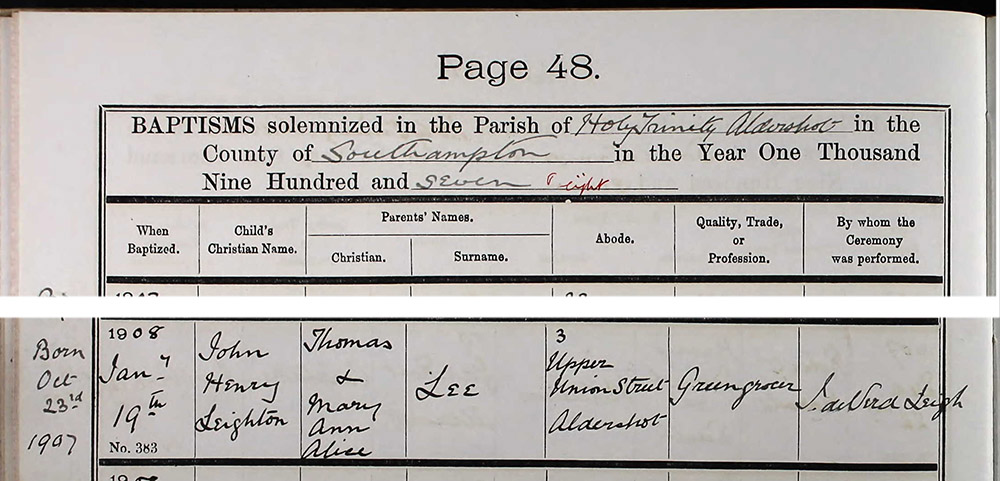 Page 48.
BAPTISMS solemnized in the Parish of Holy Trinity Aldershot in the
County of Southampton in the Year One Thousand
Nine Hundred and seven & eight
When Baptized.
Child's Christian Name.
Parents' Names.
Christian.
Surname.
Abode.
Quality, Trade, or Profession.
By whom the Ceremony was performed.
Born
Oct
23rd
1907
1908
Jany
19th
No. 383
John
Henry
Leighton
Thomas
&
Mary
Ann
Alice
Lee
3
Upper
Union Street
Aldershot
Greengrocer
Leigh